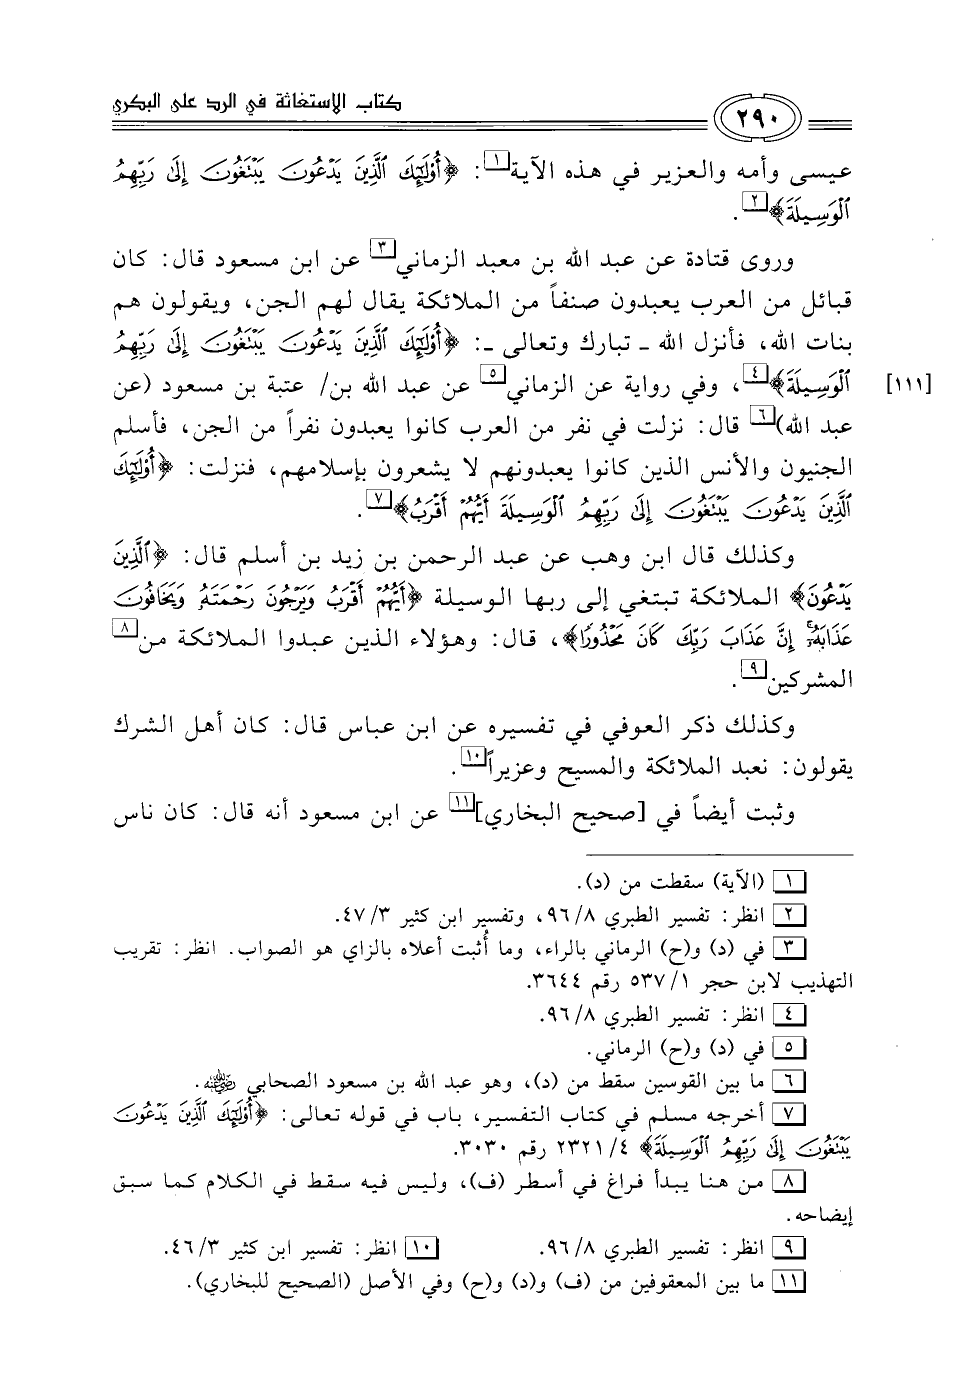 كتاب الاستغاثة في الرد على البكري
٢٩٠
عيسى وأمه والعزير في هذه الآية[١]: ﴿أُوْلَٰٓئِكَ ٱلَّذِينَ يَدْعُونَ يَبْتَغُونَ إِلَىٰ رَبِّهِمُ
ٱلْوَسِيلَةَ﴾[٢].
وروى قتادة عن عبد الله بن معبد الزماني[٣] عن ابن مسعود قال: كان
قبائل من العرب يعبدون صنفاً من الملائكة يقال لهم الجن، ويقولون هم
بنات الله، فأنزل الله ـ تبارك وتعالى ـ: ﴿أُوْلَٰٓئِكَ ٱلَّذِينَ يَدْعُونَ يَبْتَغُونَ إِلَىٰ رَبِّهِمُ
ٱلْوَسِيلَةَ﴾[٤]، وفي رواية عن الزماني[٥] عن عبد الله بن/ عتبة بن مسعود (عن
[١١١]
عبد الله)[٦] قال: نزلت في نفر من العرب كانوا يعبدون نفراً من الجن، فأسلم
الجنيون والأنس الذين كانوا يعبدونهم لا يشعرون بإسلامهم، فنزلت: ﴿أُوْلَٰٓئِكَ
ٱلَّذِينَ يَدْعُونَ يَبْتَغُونَ إِلَىٰ رَبِّهِمُ ٱلْوَسِيلَةَ أَيُّهُمْ أَقْرَبُ﴾[٧].
وكذلك قال ابن وهب عن عبد الرحمن بن زيد بن أسلم قال: ﴿ٱلَّذِينَ
يَدْعُونَ﴾ الملائكة تبتغي إلى ربها الوسيلة ﴿أَيُّهُمْ أَقْرَبُ وَيَرْجُونَ رَحْمَتَهُۥ وَيَخَافُونَ
عَذَابَهُۥٓ إِنَّ عَذَابَ رَبِّكَ كَانَ مَحْذُورًا﴾، قال: وهؤلاء الذين عبدوا الملائكة من[٨]
المشركين[٩].
وكذلك ذكر العوفي في تفسيره عن ابن عباس قال: كان أهل الشرك
يقولون: نعبد الملائكة والمسيح وعزيراً[١٠].
وثبت أيضاً في [صحيح البخاري][١١] عن ابن مسعود أنه قال: كان ناس
[١] (الآية) سقطت من (د).
[٢] انظر: تفسير الطبري ٩٦/٨، وتفسير ابن كثير ٤٧/٣.
[٣] في (د) و(ح) الرماني بالراء، وما أُثبت أعلاه بالزاي هو الصواب. انظر: تقريب
التهذيب لابن حجر ٥٣٧/١ رقم ٣٦٤٤.
[٤] انظر: تفسير الطبري ٩٦/٨.
[٥] في (د) و(ح) الرماني.
[٦] ما بين القوسين سقط من (د)، وهو عبد الله بن مسعود الصحابي رضي الله عنه.
[٧] أخرجه مسلم في كتاب التفسير، باب في قوله تعالى: ﴿أُوْلَٰٓئِكَ ٱلَّذِينَ يَدْعُونَ
يَبْتَغُونَ إِلَىٰ رَبِّهِمُ ٱلْوَسِيلَةَ﴾ ٢٣٢١/٤ رقم ٣٠٣٠.
[٨] من هنا يبدأ فراغ في أسطر (ف)، وليس فيه سقط في الكلام كما سبق
إيضاحه.
[٩] انظر: تفسير الطبري ٩٦/٨. [١٠] انظر: تفسير ابن كثير ٤٦/٣.
[١١] ما بين المعقوفين من (ف) و(د) و(ح) وفي الأصل (الصحيح للبخاري).